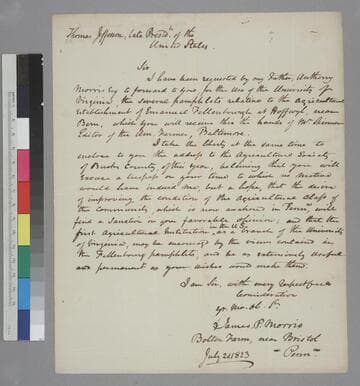 Thomas Jefferson, late Presdt. of the
United States.
Sir
I have been requested by my Father, Anthony
Morris Esq to forward to you, for the Use of the University of
Virginia the several pamphlets relative to the Agricultural
establishment of Emanuel Fellenbourgh at Hoffwyl, near
Bern, which you will receive thro the hands of Mr Skinner
Editor of the Am. Farmer, Baltimore.
I take the liberty at the same time to
enclose to you the address to the Agricultural Society
of Bucks County of this year, believing that you will
excuse a trespass on your time to which no motive
would have induced me, but a hope, that the desire
of improving the condition of the Agricultural Class of
the Community which is now awakened in Penna. will
find a Sanction in your favorable opinion, and that the
first Agricultural Institution in the U.S. as a branch of the University
of Virginia, may be encouraged by the views contained in
the Fellenbourg pamphlets, and be as extensively useful
and permanent as your wishes would make them.
I am Sir, with very respectful
Consideration
yr. Mo. Ob. St.
James P. Morris
Bolton Farm, near Bristol
July 24 1823 Penna